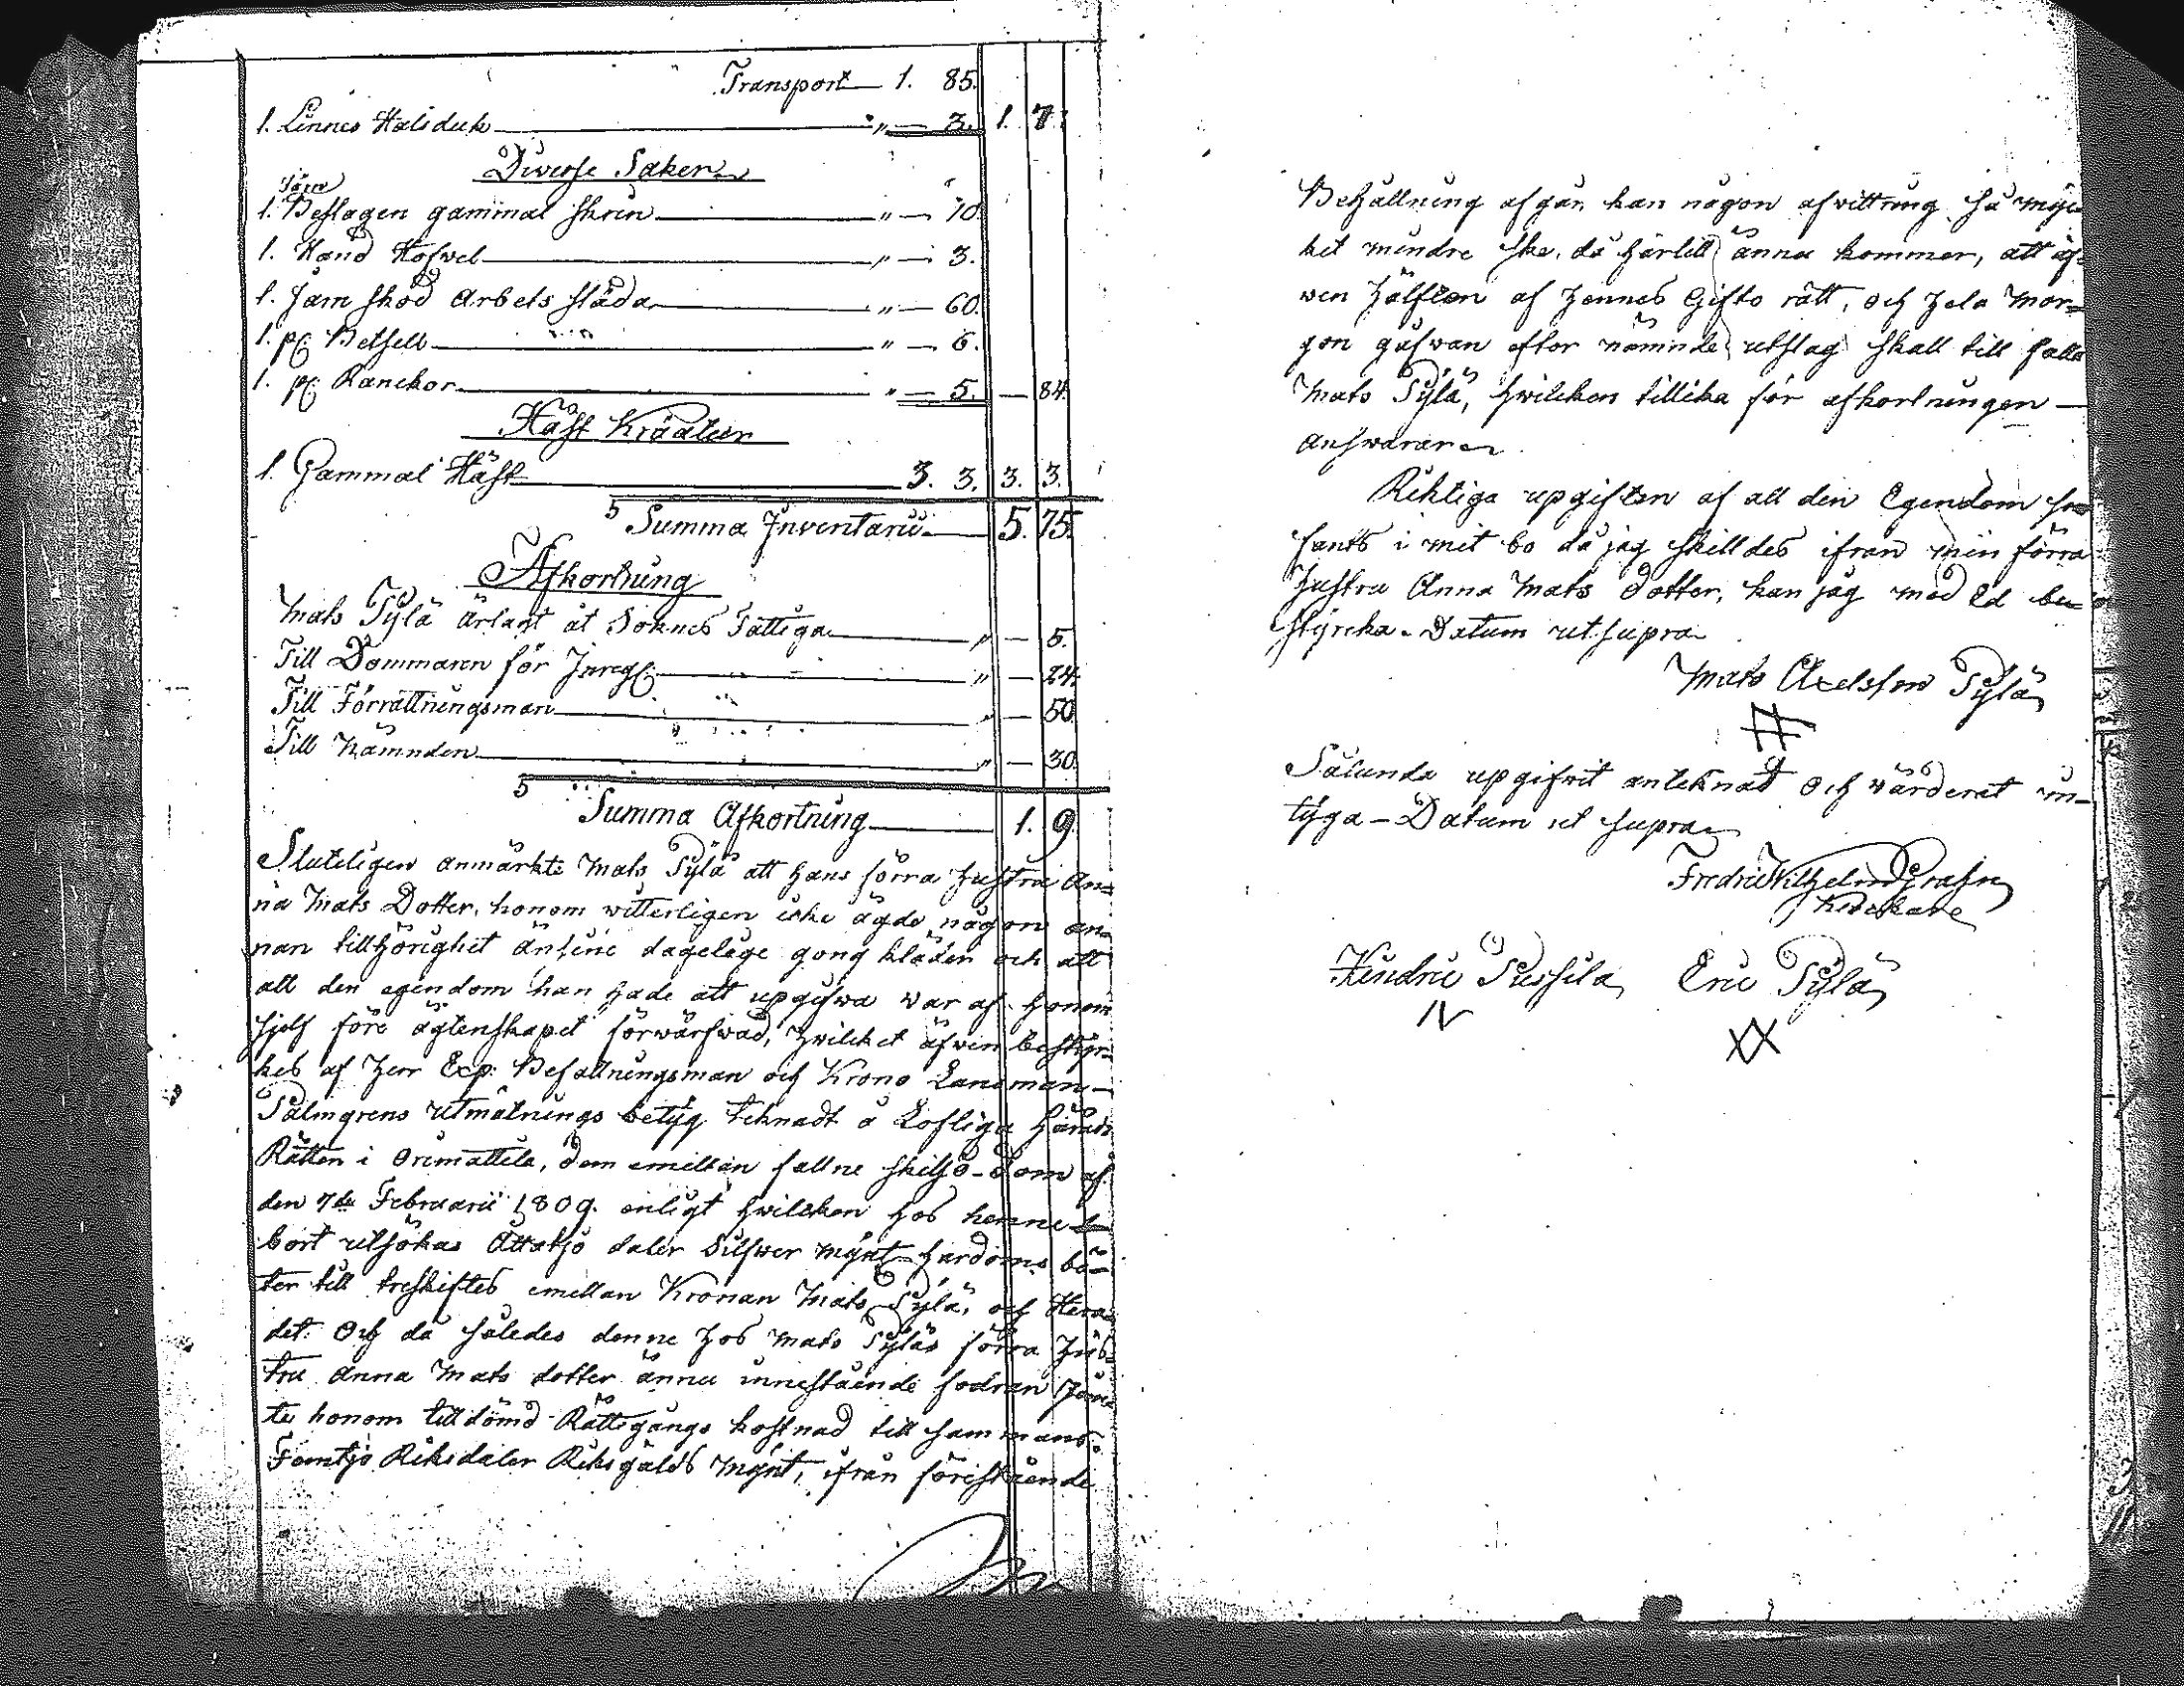 Transport — 1. 85.
1. Linnes Halsduk — " — 3. 1. 7.
Diverse Saker
Järn
1. Beslagen gammal skrin — " — 10.
1. Hand Hofwel — " — 3.
1. Järn skod Arbets släda — " — 60.
1. pr Betsell — " — 6.
1. pr Ranckor — " — 5. — 84.
Häst Kräatur
1. Gammal Häst — 3. 3. 3. 3.
S Summa Inventarii — 5. 75.
Afkortning
Mats Pylä ärlagt åt Soknes Fattiga — " — 5.
Till Dommaren för — " — 24.
Till Förrättningsman — " — 50.
Till Nämnden — " — 30.
S Summa Afkortning — 1. 9.
Sluteligen anmärkte Mats Pylä att hans förra hustru An=
na Mats Dotter, honom witterligen icke ägde någon an=
nan tillhörighet än sine dagelige gong kläder och att
all den egendom han hade att upgifwa war af honom
sjelf före ägtenskapet förwärfwad, hwilcket äfwen bestyr=
kes af Herr Exp: Befallningsman och Krono Länsman
Palmgrens utmätnings betyg teknadt å Lofliga Härads
Rätten i Orimattila, dem emillan fallne skilso-dom af
den 7de Februarii 1809. enligt hwilcken hos henne
bort utsökas Åttatjo daler Silfwer mynt hordoms bö=
ter till treskiftes emellan Kronan Mats Pylä, och Hera=
det. Och då således denne hos Mats Pyläs förra hus=
tru Anna Mats dotter ännu innestående fodran jäm=
te honom tilldömd Rättegångs kostnad till sammans
Femtjo Riksdaler Riksgälds Mynt, ifrån förestående
Behållning afgår, kan någon afvittring så myc=
ket mindre ske, då härtill ännu kommer, att äf=
wen hälften af hennes Gifto rätt, och hela Mor=
gon gåfwan efter nämnde utslag skall till falla
Mats Pylä, hwilcken tillika för afkortningen —
answarar
Riktiga upgiften af all den Egendom som
fants i mit bo då jag skilldes ifrån min förra
hustru Anna Mats dotter, kan jag med Ed be=
styrcka. Datum ut supra
Mats Axelsson Pylä
Sålunda upgifwit anteknat och värderat in=
tyga — Datum ut supra
Fredric Wilhelm Grahn
Hendric Eric Pylä